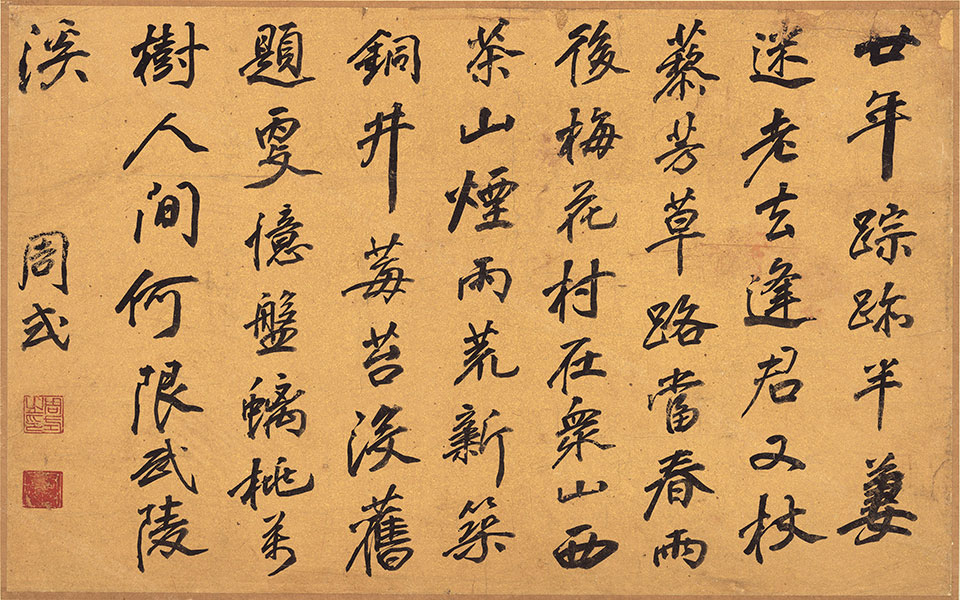 廿年踪跡半萋
迷老去逢君又杖
藜芳草路當春雨
後梅花村在衆山西
茶山煙雨荒新築
銅井莓苔没舊
題更憶盤螭桃萬
樹人間何限武陵
溪
周